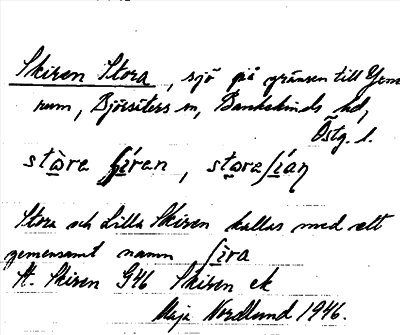 Skiren Stora, sjö på gränsen till Yxne
rum, Björsäters sn, Bankekinds hd,
Östg. l.
Stora och Lilla Skiren kallas med ett
gemensamt namn ʃira
St. Skiren G46 Skiren ek
Maja Nordlund 1946.